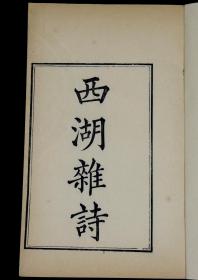 西湖雜詩